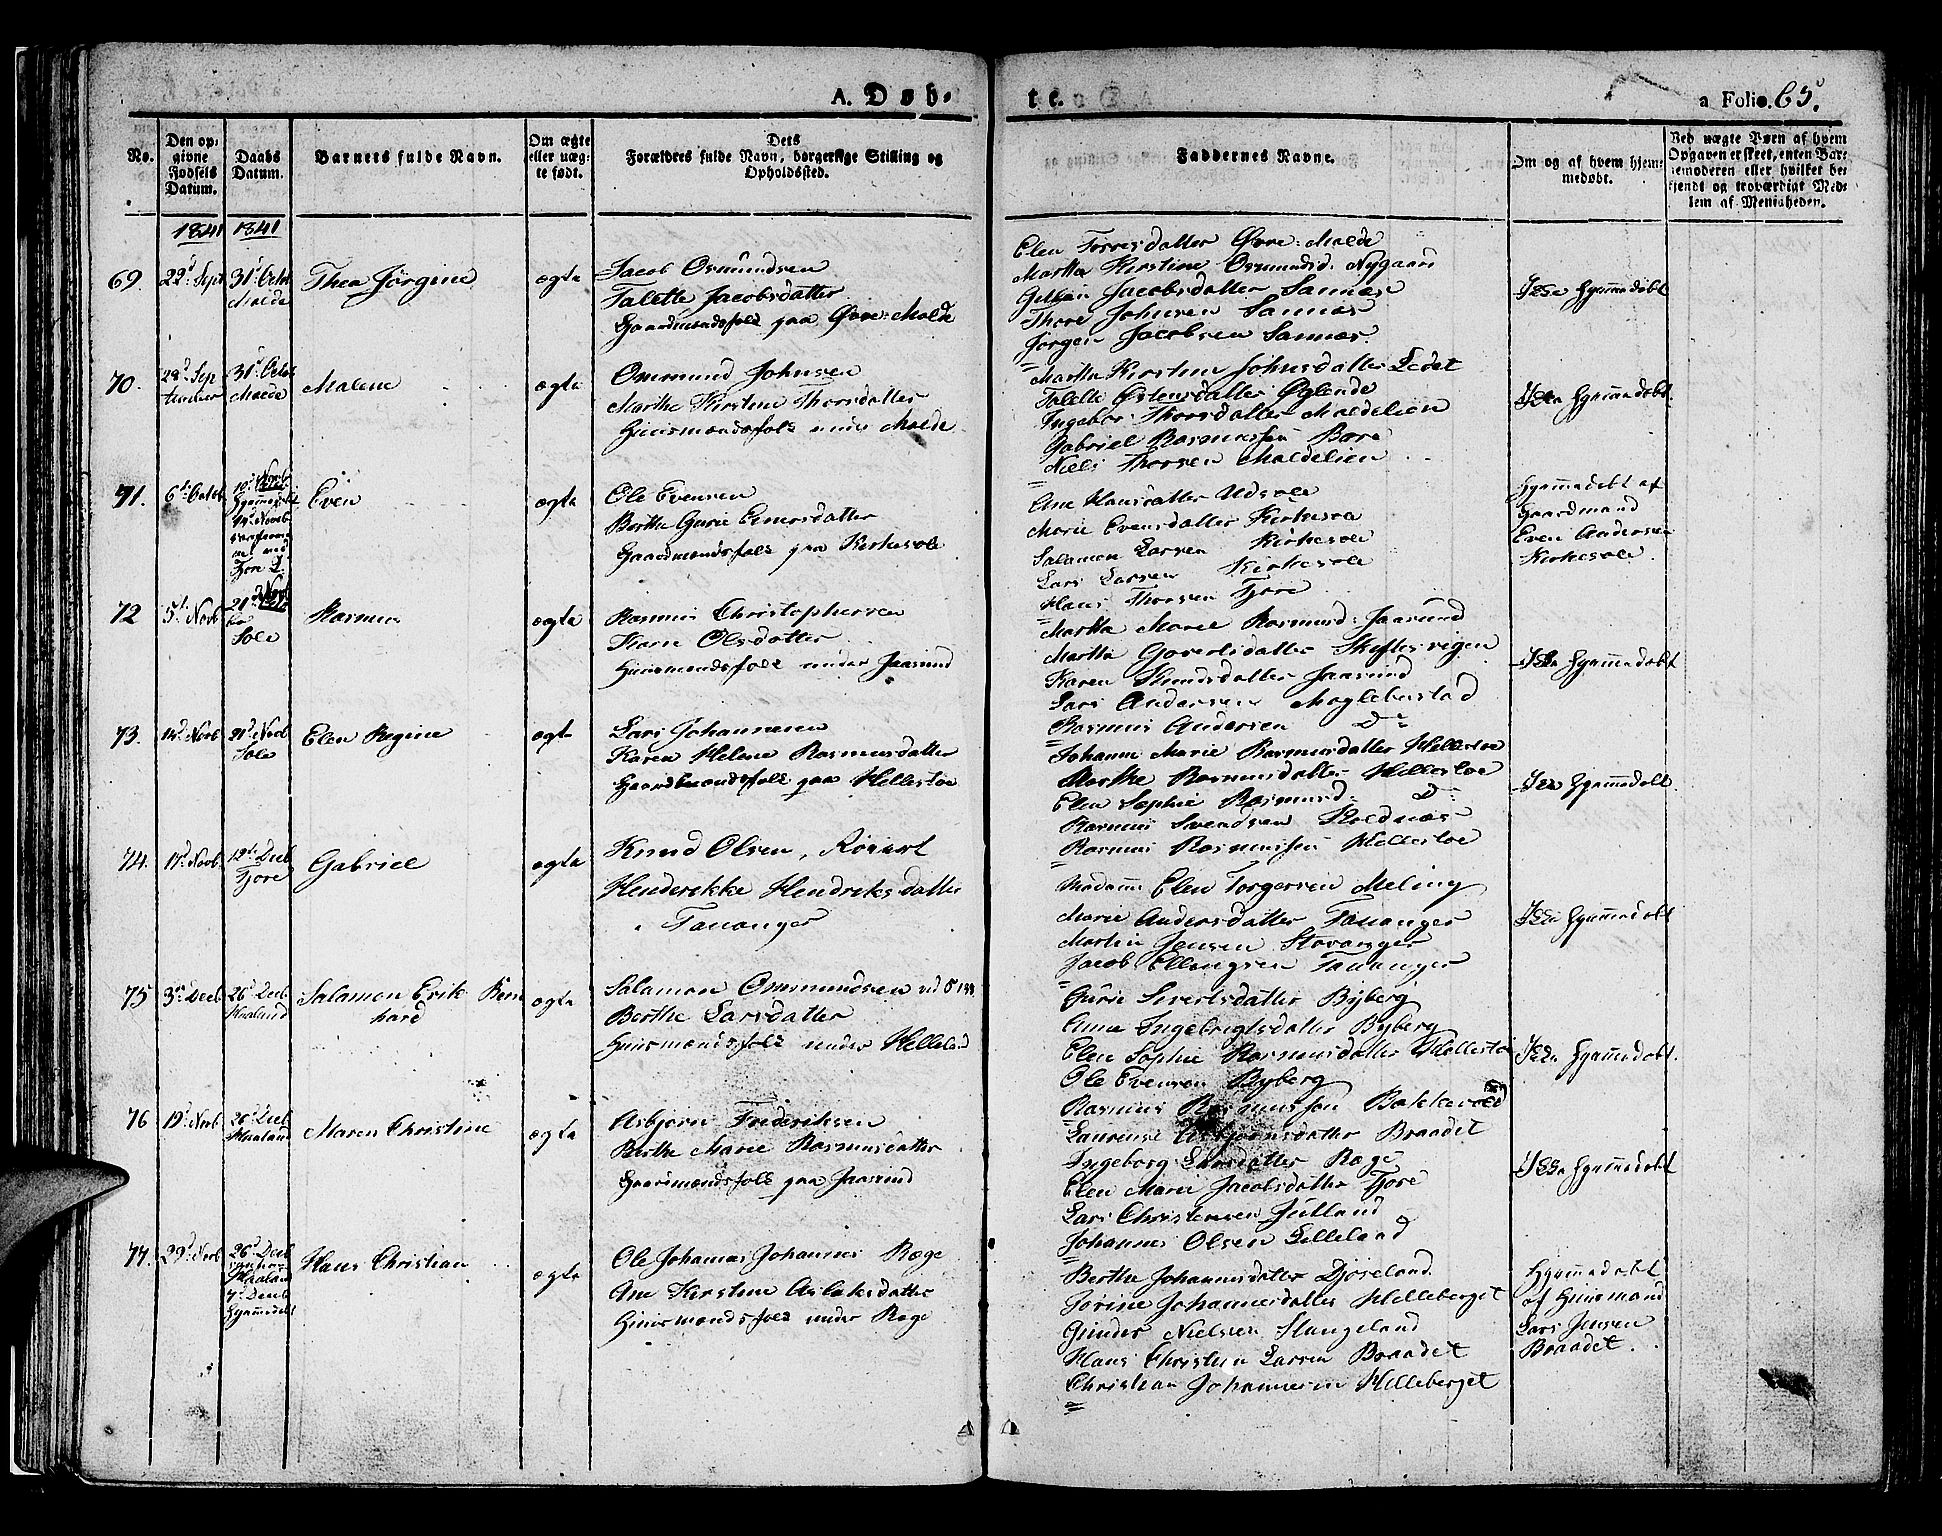 A. Døb-
te.
a Folio. 65.
No.
Den op-
givne
Fødsels
Datum.
Daabs
Datum.
Barnets fulde Navn.
Om ægte
eller uæg-
te født.
Dets
Forældres fulde Navn, borgerlige Stilling og
Opholdssted.
Faddernes Navne.
Om og af hvem hjem-
medøbt.
Ved uægte Børn af hvem
Opgaven er skeet, enten Bar-
nemoderen eller hvilket be-
kjendt og troværdigt Med-
lem af Menigheden.
1841 1841
69. 22d Sept 31t Octob
Malde
Thea Jörgine
ægte
Jacob Osmundsen
Talette Jacobsdatter
Gaardmandsfolk paa Øvre-Malde
Elen Torresdatter Øvre-Malde
Martha Kirstine Osmundsd. Nygaard
Jacobsdatter Sannæs
Thore Johnsen Sannæs
Jörgen Jacobsen Sannæs
Ikke hjemmedøbt
70. 22d Sep 31t Octob
Malde
Malene
ægte
Ommund Johnsen
Marthe Kirstine Thorsdatter
Huusmandsfolk under Malde
Martha Kirstine Johnsdatter Ledet
Talette Østensdatter Øglende
Ingebor Thorsdatter Maldelien
Gabriel Rasmussen Bore
Niels Thorsen Maldelien
Ikke hjemmedøbt
71. 6te Octob
10d Novb
Hjemmedøbt
14d Novb
med
Tjore
Even
ægte
Ole Evensen
Berthe Gurie Einersdatter
Gaardmandsfolk paa Kirkesole
Ane Hansdatter Udsole
Marie Evensdatter Kirkesole
Salamon Larsen Kirkesole
Lars Larsen Kirkesole
Hans Thorsen Tjore
Hjemmedøbt af
Gaardmand
Even Andersen
Kirkesole
72 5t Novb 21d Novb
Sole
Rasmus
ægte
Rasmus Christophersen
Kari Olsdatter
Huusmandsfolk under Jaasund
Martha Marie Rasmusd. Jaasund
Martha Govertsdatter Skiftesvigen
Karen Knudsdatter Jaasund
Lars Andersen Meglebustad
Rasmus Andersen Do
Ikke hjemmedøbt
73. 14d Novb 21d Novb
Sole
Elen Regine
ægte
Lars Johannesen
Karen Helene Rasmusdatter
Gaardbrugerfolk paa Hellestøe
Johanne Marie Rasmusdatter Hellestøe
Marthe Rasmusdatter Hellestøe
Elen Sophie Rasmusd. Do
Rasmus Svendsen Roldnæs
Rasmus Rasmussen Hellestøe
Ikke hjemmedøbt
74. 17d Novb 12te Decb
Tjore
Gabriel
ægte
Knud Olsen,
Henderikke Hendriksdatter
Tananger
Madame Elen Torgersen Meling
Marie Andersdatter Tananger
Martin Jensen Stavanger
Jacob Ellingsen Tananger
Ikke hjemmedøbt
75 3die Decb 26d Decb
Haaland
Salamon Erik Bern
hard
ægte
Salamon Ommundsen
Berthe Larsdatter
Huusmandsfolk under Helleland
Gurie Sivertsdatter Byberg
Anne Ingebrigtsdatter Byberg
Elen Sophie Rasmusdatter Hellestøe
Ole Evensen Byberg
Rasmus Rasmussen Bakkevold
Ikke hjemmedøbt
76 19d Novb 26d Decb
Haaland
Maren Christine
ægte
Asbjørn Frederiksen
Berthe Marie Rasmusdatter
Gaardmandsfolk paa Jaasund
Laurense Asbjørnsdatter Braadet
Ingeborg Larsdatter Ræge
Elen Marie Jacobsdatter Tjore
Lars Christensen Jülland
Johannes Olsen Lilleland
Ikke hjemmedøbt
77. 29d Novb 26d Decb
Haaland
7d Decb
hjemmedøbt
Hans Christian
ægte
Ole Johannas Johannes Ræge
Ane Kirstine Aslaksdatter
Huusmandsfolk under Ræge
Berthe Johannesdatter Djöseland
Jorine Johannesdatter Helleberget
Gunder Nielsen Stangeland
Hans Christian Larsen Braadet
Christian Johannesen Helleberget
Hjemmedøbt
af Huusmand
Lars Jensen
Braadet